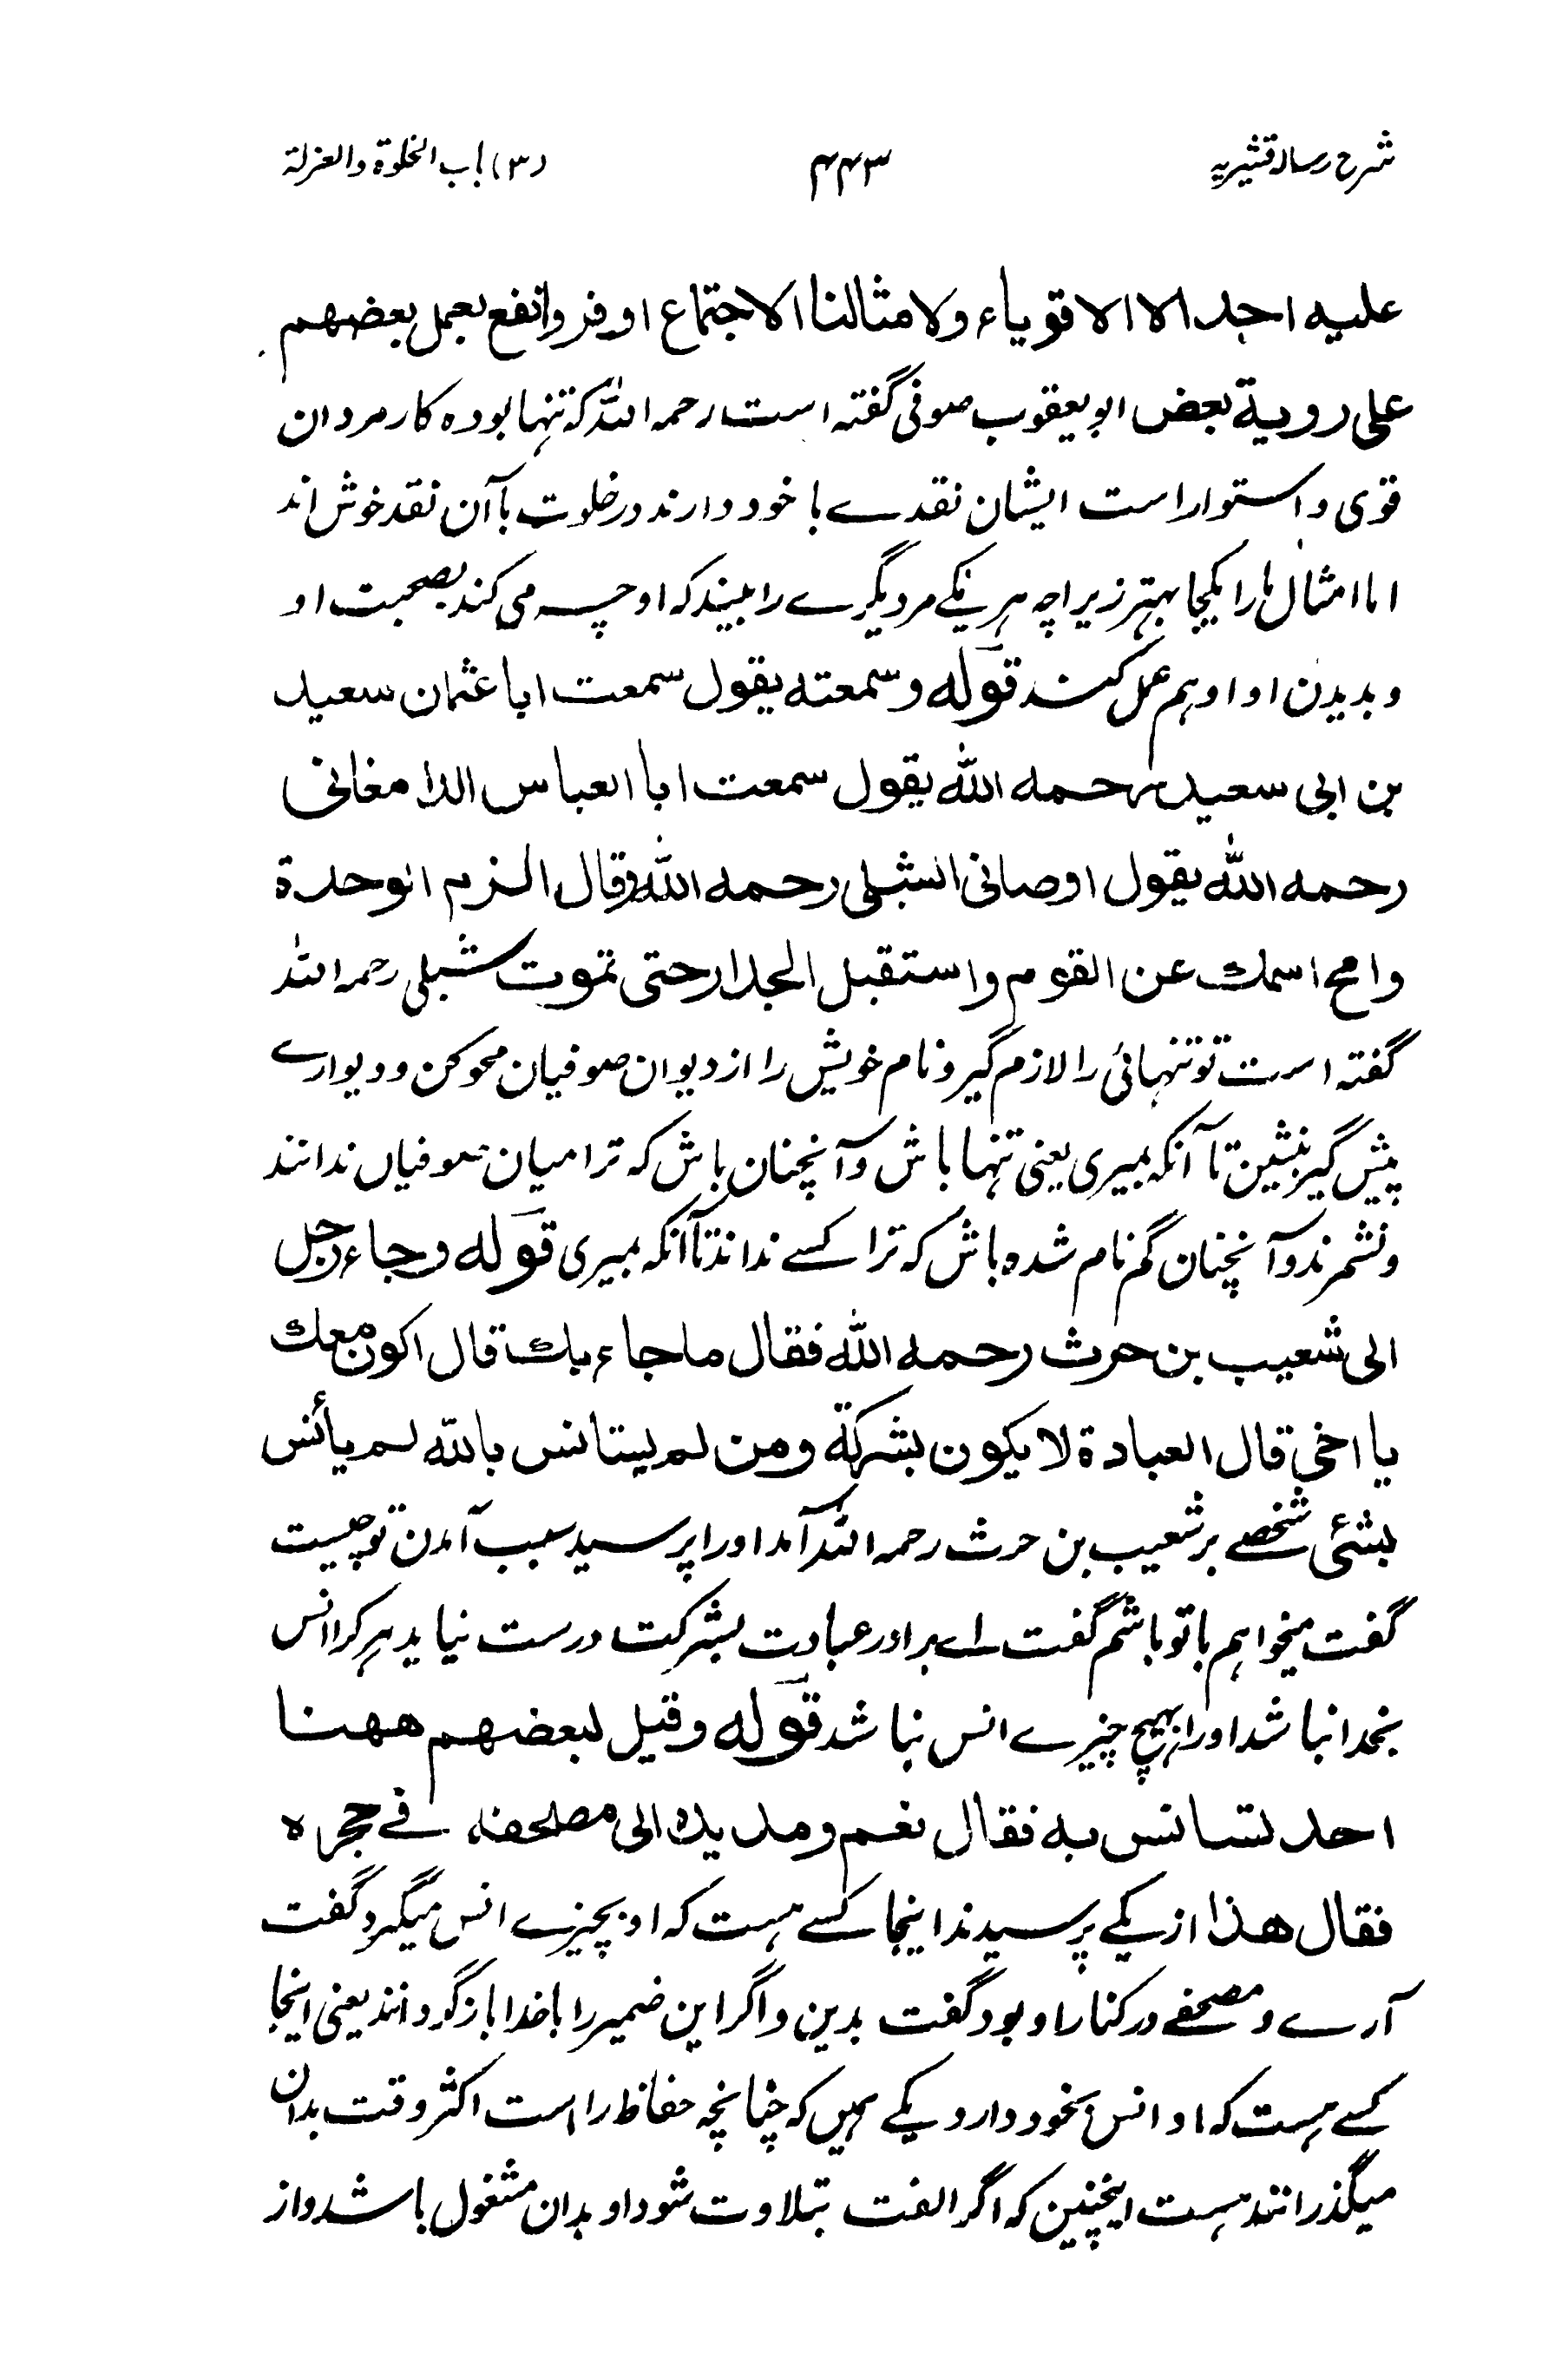 شرح رسالہ قشیریہ ۴۴۳ (۳) باب الخلوة والعزلة
علیه احد الا الاقویاء ولامثالنا الاجتماع اوفر وانفع یعمل بعضهم
علی رویة بعض ابو یعقوب صوفی گفته است رحمه الله که تنها بوده کار مردان
قوی و استوار است ایشان نقدے با خود دارند در خلوت با آن نقد خوش اند
اما امثال ما را یکجا بهتر زیراچه هر یکے مر دیگرے را بیند که او چه می کند بصحبت او
و بدیدن او او هم عمل کند قوله وسمعته یقول سمعت ابا عثمان سعید
بن ابی سعید رحمه الله یقول سمعت ابا العباس الدامغانی
رحمه الله یقول اوصانی الشبلی رحمه الله وقال الزم الوحدة
وامح اسمك عن القوم واستقبل الجدار حتی تموت شبلی رحمه الله
گفته است تو تنهائی را لازم گیر و نام خویش را از دیوان صوفیان محو کن و دیوارے
پیش گیر بنشین تا آنکه بمیری یعنی تنها باش و آنچنان باش که ترا میان صوفیاں ندانند
ونشمرند و آنچنان گم نام شده باش که ترا کسے نداند تا آنکه بمیری قوله وجاء رجل
الی شعیب بن حرث رحمه الله فقال ماجاء بك قال اکون معك
یا اخی قال العبادة لا یکون بشرکة ومن لم یستانس بالله لم یأنس
بشئی شخصے بر شعیب بن حرث رحمه الله آمد او را پرسید سبب آمدن تو چیست
گفت میخواهم با تو باشم گفت اے برادر عبادت بشرکت درست نیاید هر کرا انس
بخدا نباشد او را بهیچ چیزے انس نباشد قوله وقیل لبعضهم ههنا
احد تستانس به فقال نعم ومد یده الی مصحفه فے حجره
فقال هذا از یکے پرسیدند اینجا کسے هست که او بچیزے انس میگیرد گفت
آرے و مصحفے در کنار او بود گفت بدین واگر این ضمیر را با خدا باز گردانند یعنی اینجا
کسے هست که او انس بخود دارد یکے همیں که چنانچه حفاظ را است اکثر وقت بدان
میگذرانند هست اینچنین که اگر الفت بتلاوت شود او بدان مشغول باشد و از